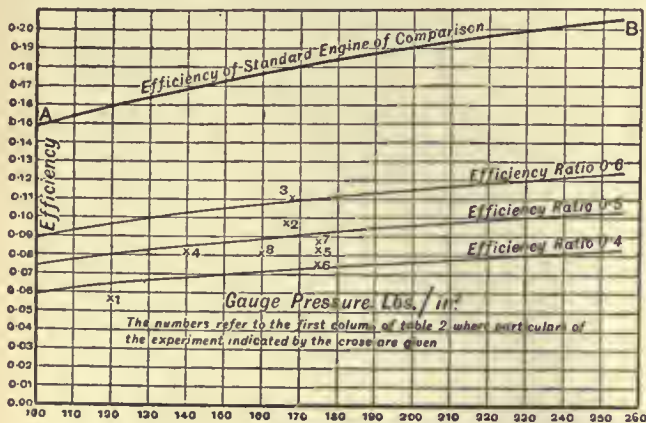 0·20
0·19
0·18
0·17
0·16
0·15
0·14
0·13
0·12
0·11
0·10
0·09
0·08
0·07
0·06
0·05
0·04
0·03
0·02
0·01
0·00
Efficiency
A
B
Efficiency of Standard Engine of Comparison
Efficiency Ratio 0·6
Efficiency Ratio 0·5
Efficiency Ratio 0·4
3
×2
×7
×4
×8
×5
×6
×1
Gauge Pressure Lbs./in²
The numbers refer to the first column of table 2 where particulars of
the experiment indicated by the cross are given
100 110 120 130 140 150 160 170 180 190 200 210 220 230 240 250 256